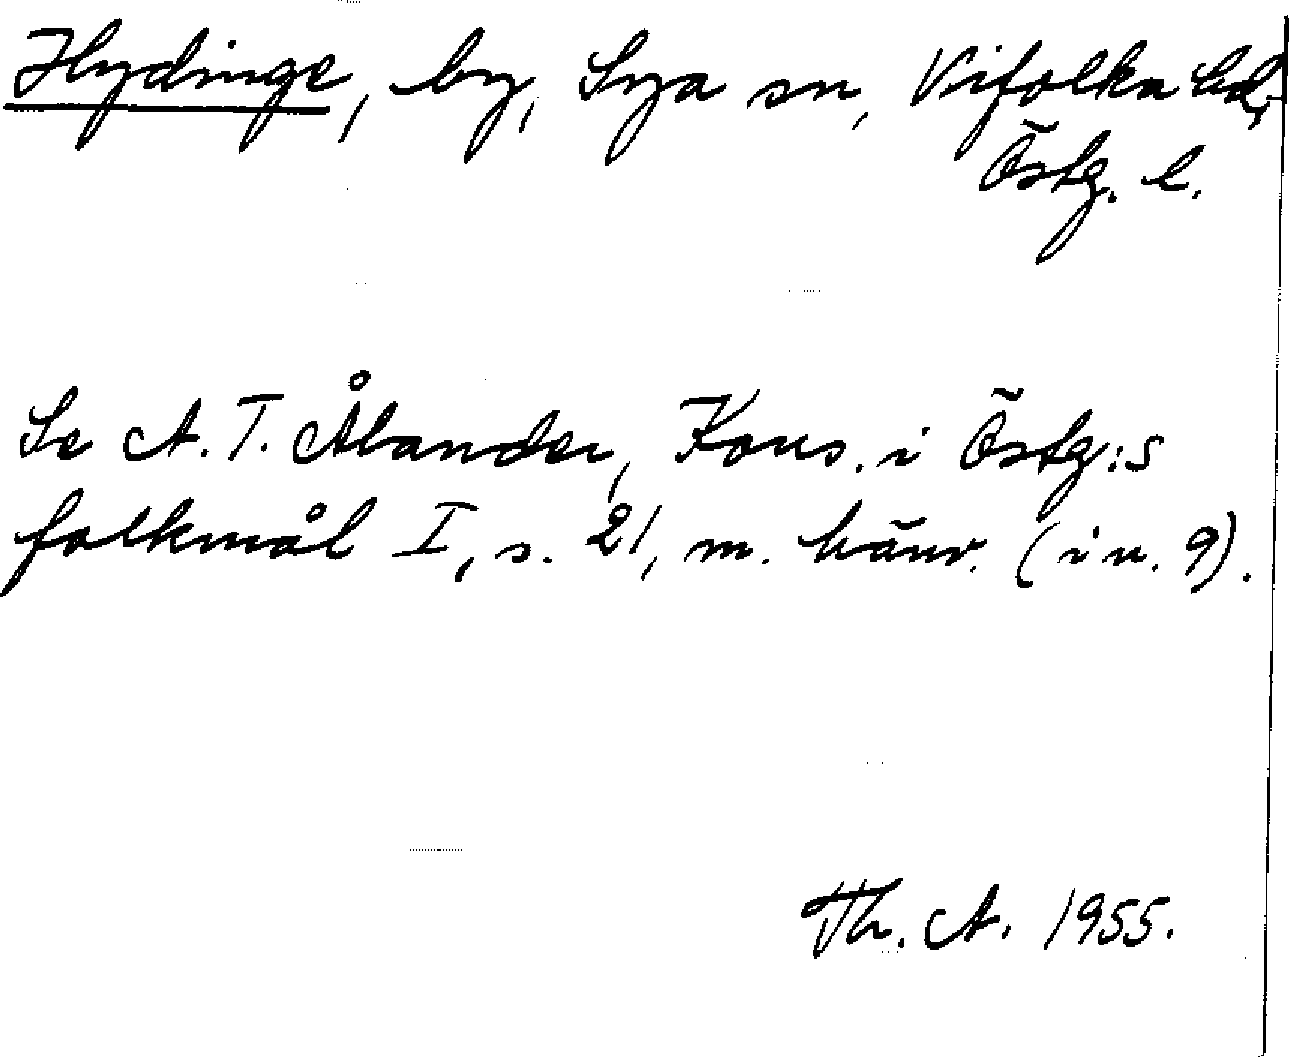 Hydinge, by, Sya sn, Vifolka hd,
Östg. l.
Se A. T. Ålander, Kons. i Östg:s
folkmål I, s. 21, m. hänv. (i n. 9).
Th. A. 1955.